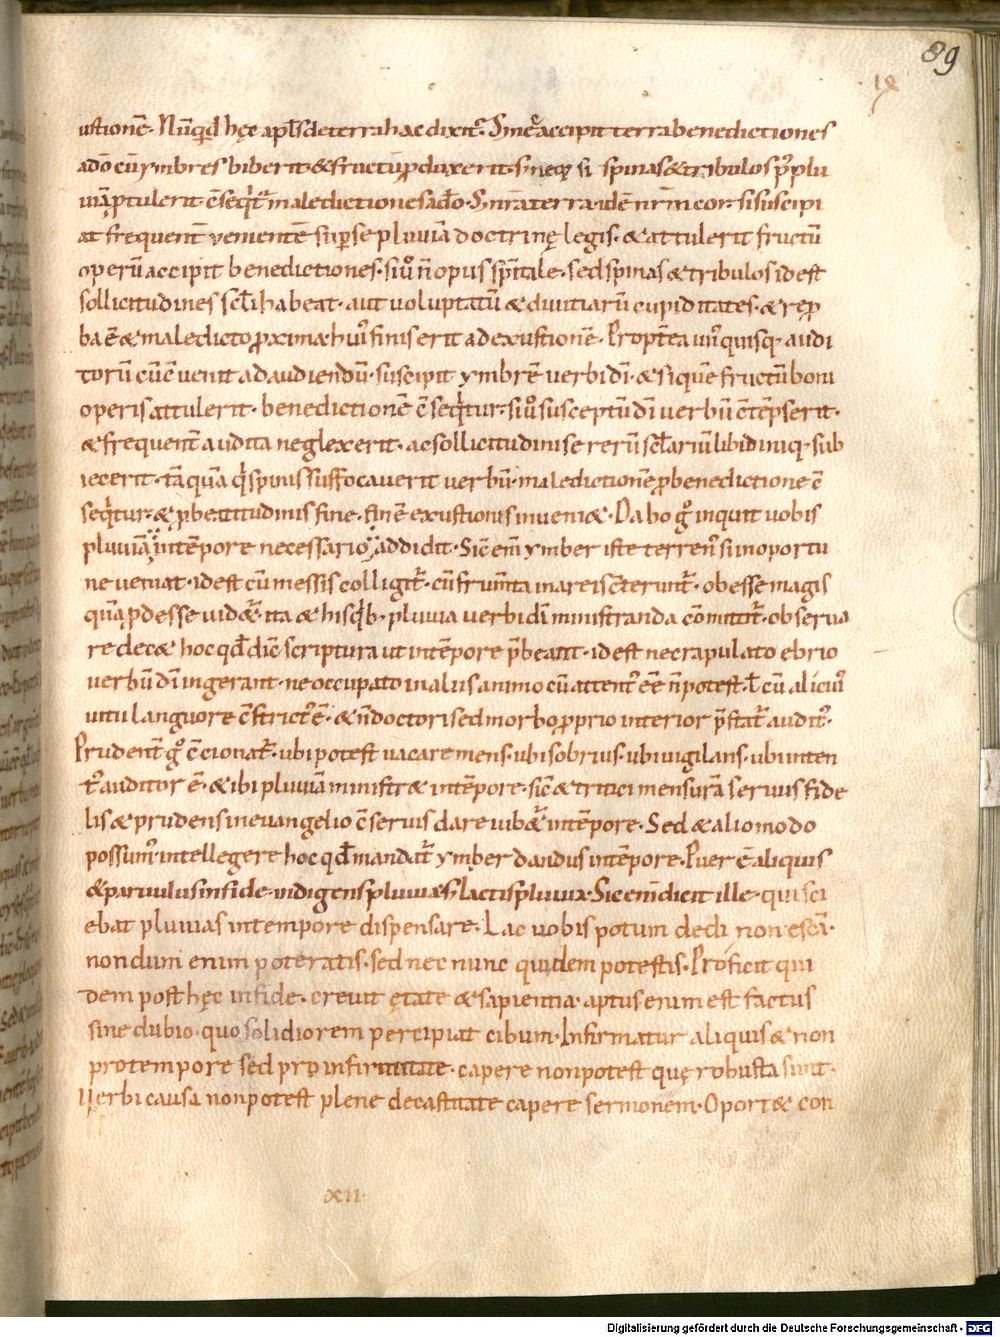 89
ustionē. Nūqd hęc apłs de terra hac dixit. Sine accipit terra benedictiones
a dō cū ymbres biberit & fructū pduxerit. si neq; si spinas & tribulos p plu
uiā ptulerit c̄seqt maledictiones a dō. S; nr̄a terra idē nr̄m cor si suscipi
at frequent̄ venientē sup se pluuiā doctrinę legis. & attulerit fructū
operū accipit benedictiones. siu n̄ opus spītale. sed spinas & tribulos id est
sollicitudines scłi habeat. aut uoluptatū & diuitiarū cupiditates. & rep
ba ē & maledicto pxima hui finis erit ad exustionē. Propt̄ea unquisq. audi
torū cū c̄uenit ad audiendū. suscipit ymbrē uerbi dī. & si quē fructū boni
operis attulerit. benedictionē c̄seqtur. siu susceptū dī uerbū c̄tēpserit.
& frequent̄ audita neglexerit. ac sollicitudini se rerū scłariū libidiniq. sub
iecerit. tā quā q spinis suffocauerit uerbū. maledictionē p benedictione c̄
seqtur. & p beatitudinis fine. finē exustionis inueni&. Dabo g inquit uobis
pluuiā in tēpore necessario addidit. Sic em̄ ymber iste terren si inoportu
ne ueniat. id est cū messis colligit. cū frumta in areis c̄terunt. obesse magis
quā pdesse uid&. ita & hisqb. pluuia uerbi dī ministranda cōmittit. obserua
re dec& hoc qd dic̄ scriptura ut in tēpore pbeant. id est nec rapulato ebrio
uerbū dī ingerant. ne occupato in aliis animo cū attent eē n̄ potest. ł cū alicui
uitii languore c̄strict ē. & n̄ doctori sed morbo pprio interior pstat audit.
Prudent̄ g c̄cionat. ubi potest uacare mens. ubi sobrius. ubi uigilans. ubi inten
t auditor ē. & ibi pluuiā ministr& in tēpore. sic & tritici mensurā seruus fide
lis & prudens in euangelio c̄seruis dare iub& in tēpore. Sed & alio modo
possum intellegere hoc qd mandat ymber dandus in tēpore. Puer ē aliquis
& paruulus in fide. indigens pluuia s; lactis pluuia. Sic enī dicit ille. qui sci
ebat pluuias in tempore dispensare. Lac uobis potum dedi non escā.
nondum enim poteratis. sed nec nunc quidem potestis. Proficit qui
dem post hęc in fide. creuit ętate & sapientia. aptus enim est factus
sine dubio. quo solidiorem percipiat cibum. Infirmatur aliquis & non
pro tempore sed pro infirmitate. capere non potest quę robusta sunt.
Uerbi causa non potest plene decastitate capere sermonem. Oport& con
xii.
Digitalisierung gefördert durch die Deutsche Forschungsgemeinschaft - DFG